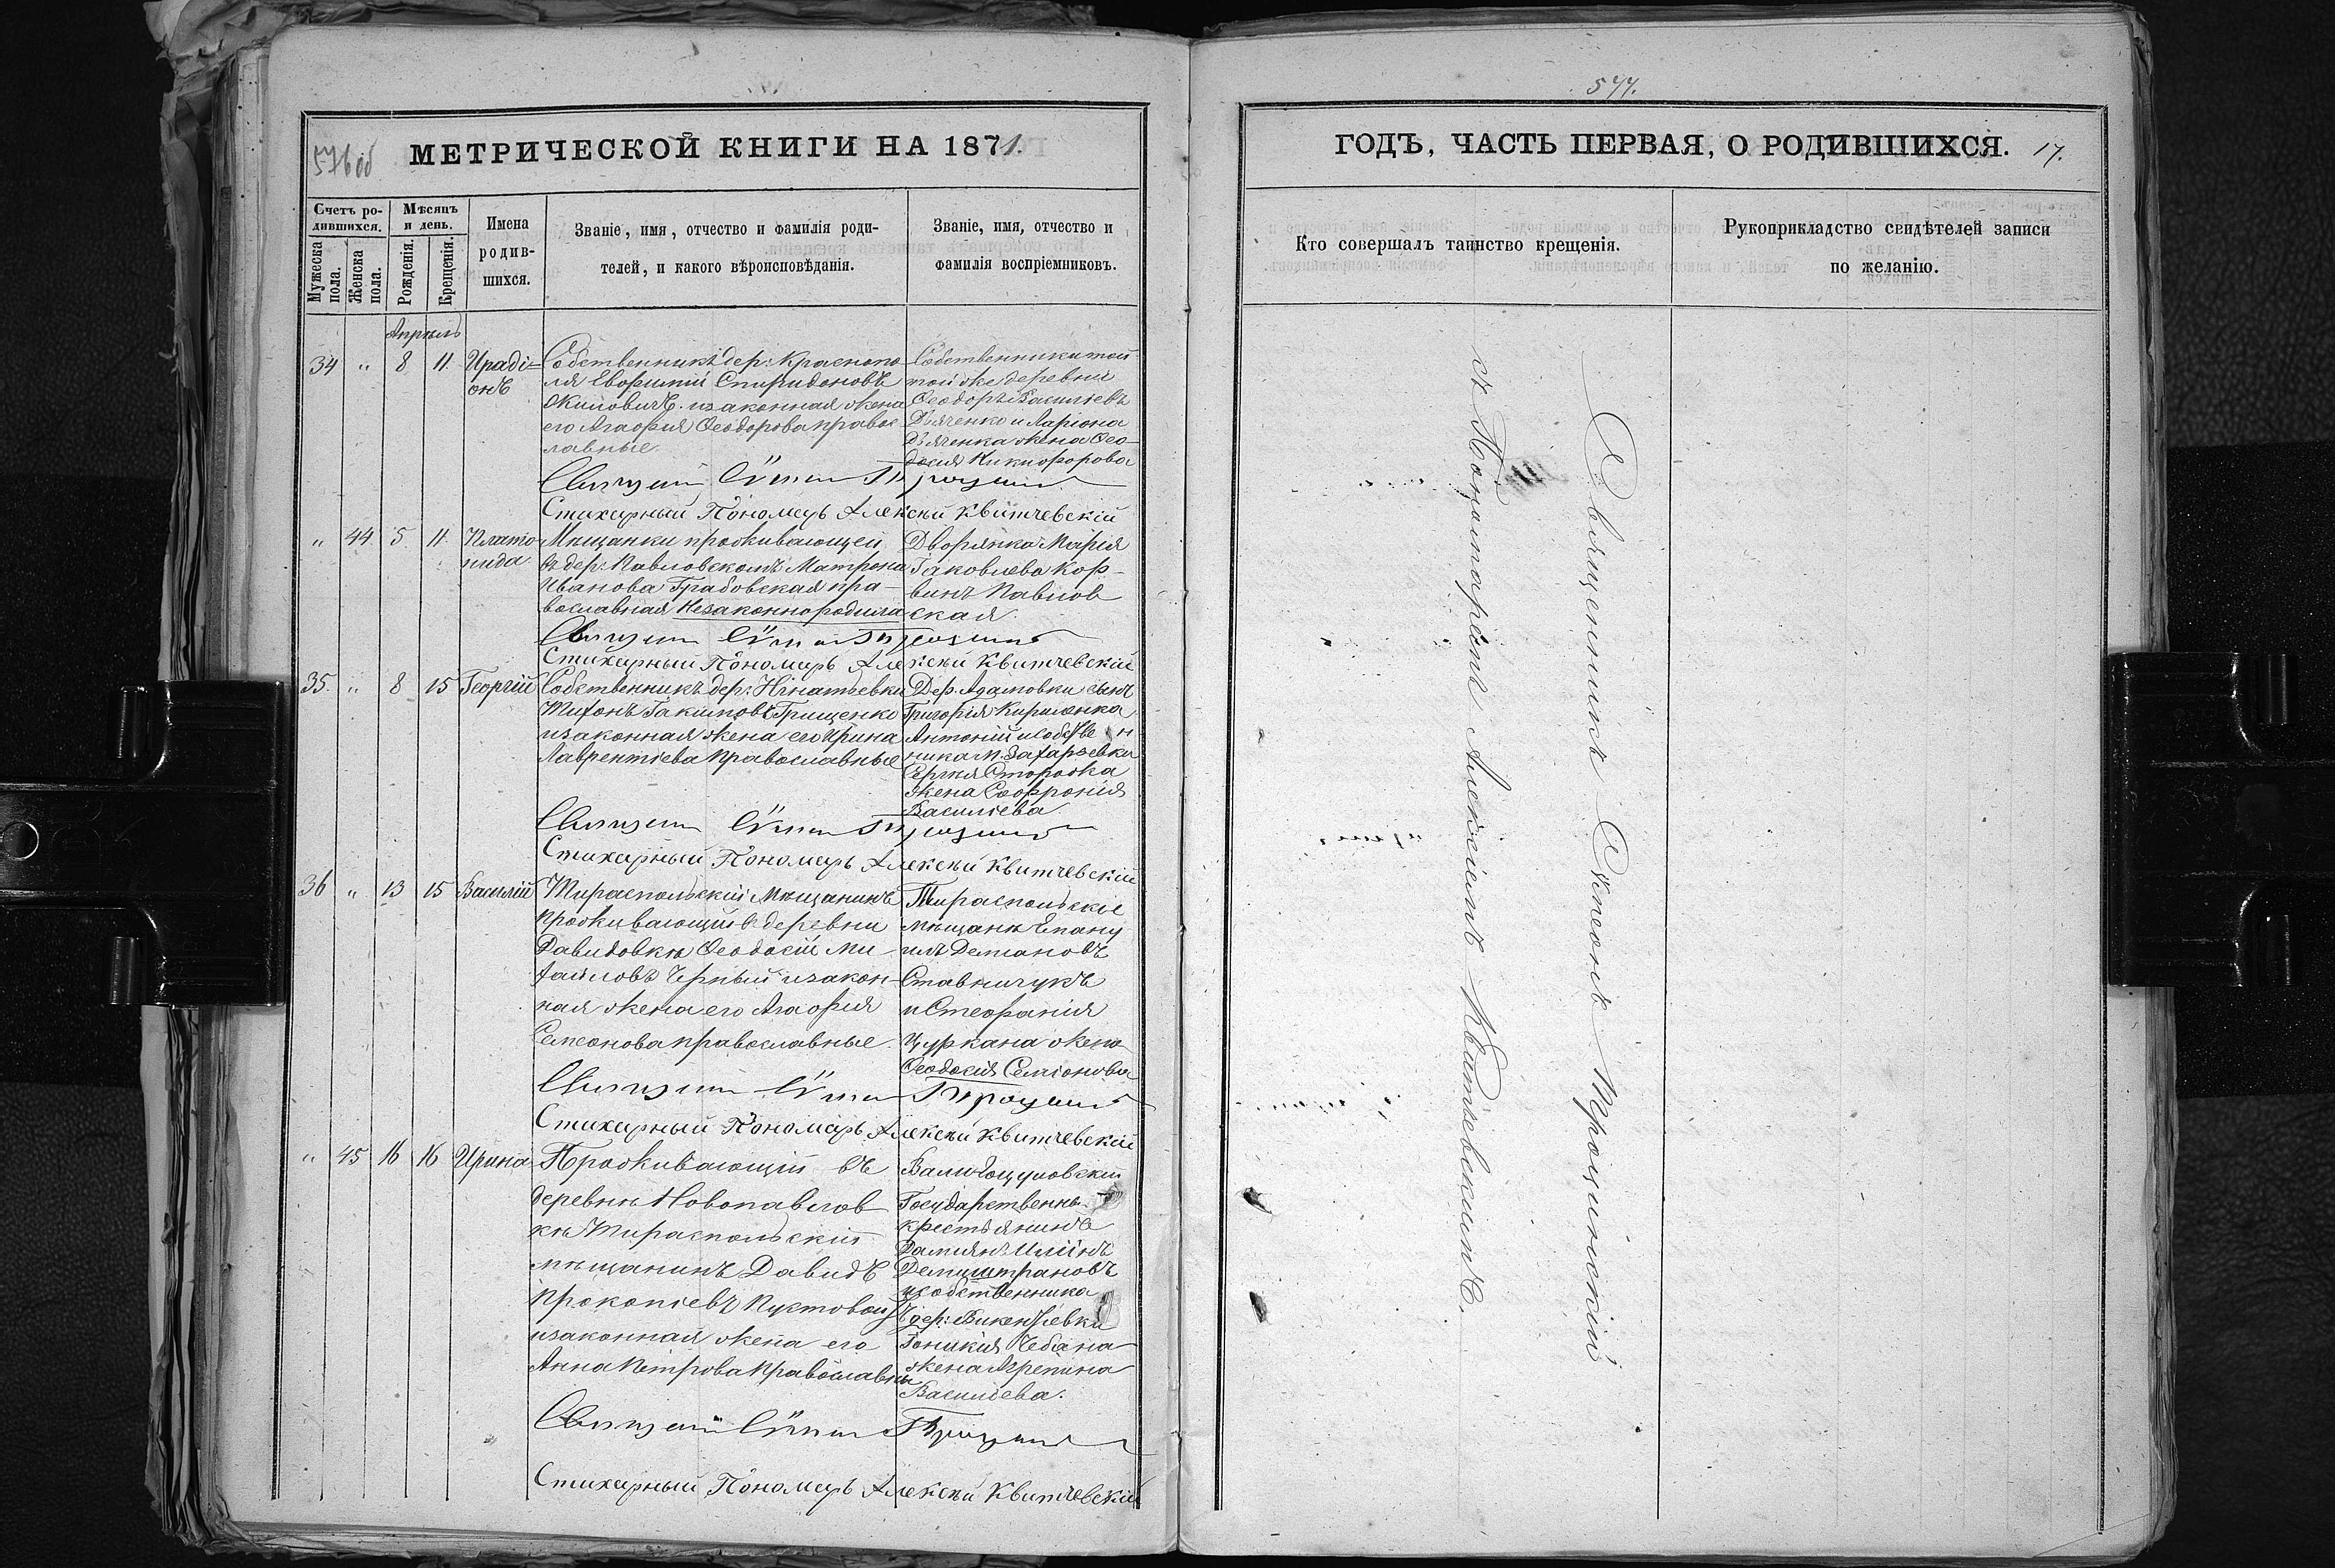 576 об
МЕТРИЧЕСКОЙ КНИГИ НА 1871.
Счетъ ро-
дившихся.
Мѣсяцъ
и день.
Мужеска
пола.
Женска
пола.
Рожденія.
Крещенія.
Имена
родив-
шихся.
Званіе, имя, отчество и фамилія роди-
телей, и какого вѣроисповѣданія.
Званіе, имя, отчество и
фамилія воспріемниковъ.
Апрѣль
34 " 8 11. Иради=
онъ
Собственникъ дер: Краснопо
ля Евфимій Спиридоновъ
и законная жена
его Агафія Ѳеодорова правос
лавные
Собственники той
той же деревни
Ѳеодоръ Васильевъ
Дьяченко и Ларіона
Дьяченка жена Ѳео-
досія Никифорова
Стихарный Пономарь Алексѣй Квитчевскій
" 44 5 11. Плато
нида
Мѣщанки проживающей
въ дер: Павловскомъ Матрона
Иванова Грабовская пра-
вославная незаконнородила
Дворянка Марія
Іаковлева Кор-
винъ Павлов
ская
Стихарный Пономарь Алексѣй Квитчевскій
35. " 8 15 Георгій
Собственникъ дер: Игнатьевки
Тихонъ Іакимовъ Грищенко
и законная жена его Ирина
Лаврентіева православные
Дер. Адамовки сынъ
Григорія Кириленка
Антоній и собстве н
ника м. Захарьевки
Сергія Сторожа
жена Софронія
Василіева.
Стихарный Пономарь Алексѣй Квитчевскій
36 " 13 15 Василій
Тираспольскій Мѣщанинъ
проживающій въ деревни
Давидовкѣ Ѳеодосій Ми-
хайловъ Черный и закон-
ная жена его Агафія
Семеонова православные.
Тираспольскіе
мѣщане Еману
илъ Демановъ
Ставничукъ
и Стефанія
Цуркана жена
Ѳеодосія Семіонова
Стихарный Пономарь Алексѣй Квитчевскій
" 45 16 16 Ирина
Проживающій въ
деревнѣ Новопавлов
кѣ Тираспольскій
мѣщанинъ Давидъ
Прокопіевъ Пустовой
и законная жена его
Анна Петрова православны
Государственны
крестьянинъ
Даміянъ Иліинъ
и собственника
дер: Викентіевки
Іоникія Чебана
жена Агрепина
Василіева.
Стихарный Пономарь Алексѣй Квитчевскій
577.
ГОДЪ, ЧАСТЬ ПЕРВАЯ, О РОДИВШИХСЯ. 17.
Кто совершалъ таинство крещенія.
Рукоприкладство свидѣтелей записи
по желанію.
Священникъ Симеонъ Троцинскій
съ Пономаремъ Алексіемъ Квитчевскимъ.